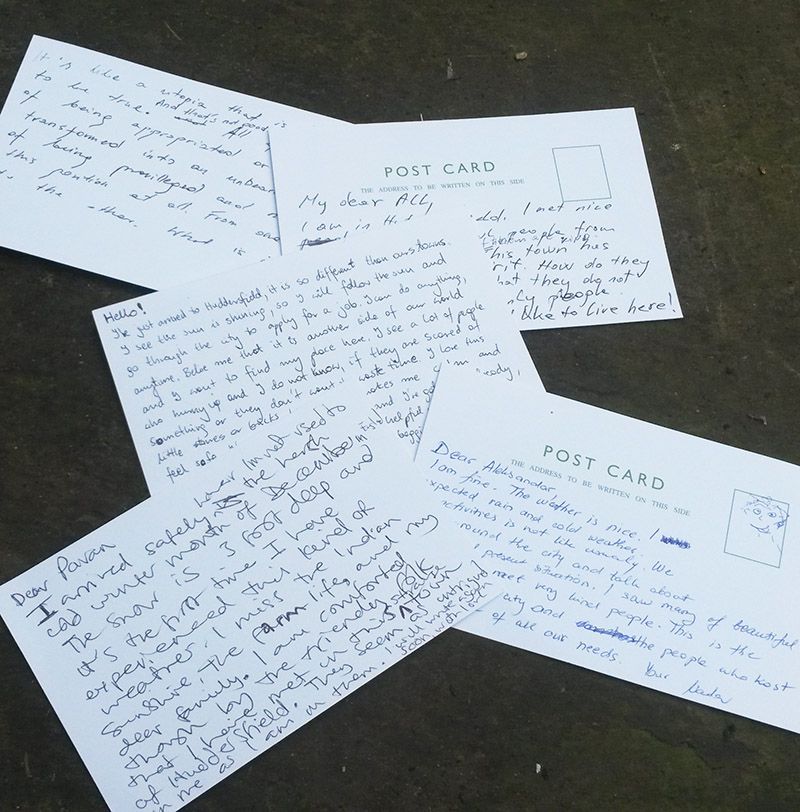 It's like a utopia that is
to be true. And that's not good
of being appropriated or
transformed into an unbear
of being privileged and n
this position at all. From one
the other. What is
POST CARD
THE ADDRESS TO BE WRITTEN ON THIS SIDE
My dear ALL,
I am in Hud ld. I met nice
people from
his town has
rit. How do they
hat they do not
nly people.
like to live here!
Hello!
I've got arrived to Huddersfield, it is so different than ours towns.
I see the sun is shining, so I will follow the sun and
go through the city to apply for a job. I can do anything,
anytime. Belie me that it is another side of our world
and I want to find my place here. I see a lot of people
who hurry up and I do not know, if they are scared of
something or they don't want waste time. I love this
little stones or backs I'm and
feel safe makes me ready,
and I've got
helpful
POST CARD
THE ADDRESS TO BE WRITTEN ON THIS SIDE
Dear Aleksandar
I am fine. The weather is nice. I
xpected rain and cold weather.
activities is not like usualy. We
round the city and talk about
present situation. I saw many of beautiful
meet very kind people. This is the
city and the people who host
of all our needs. Your
Dear Pavan
I arrived safely however I'm not used to
the harsh
cold winter month of December.
The snow is 3 foot deep and
it's the first time I have
experienced this kind of
weather. I miss the Indian
sunshine, the farm life and my
dear family. I am comforted
though by the friendly folk
that I have met in this strange town
of Huddersfield. They seem as intrigued
in me as I am in them. I will write again
soon with love